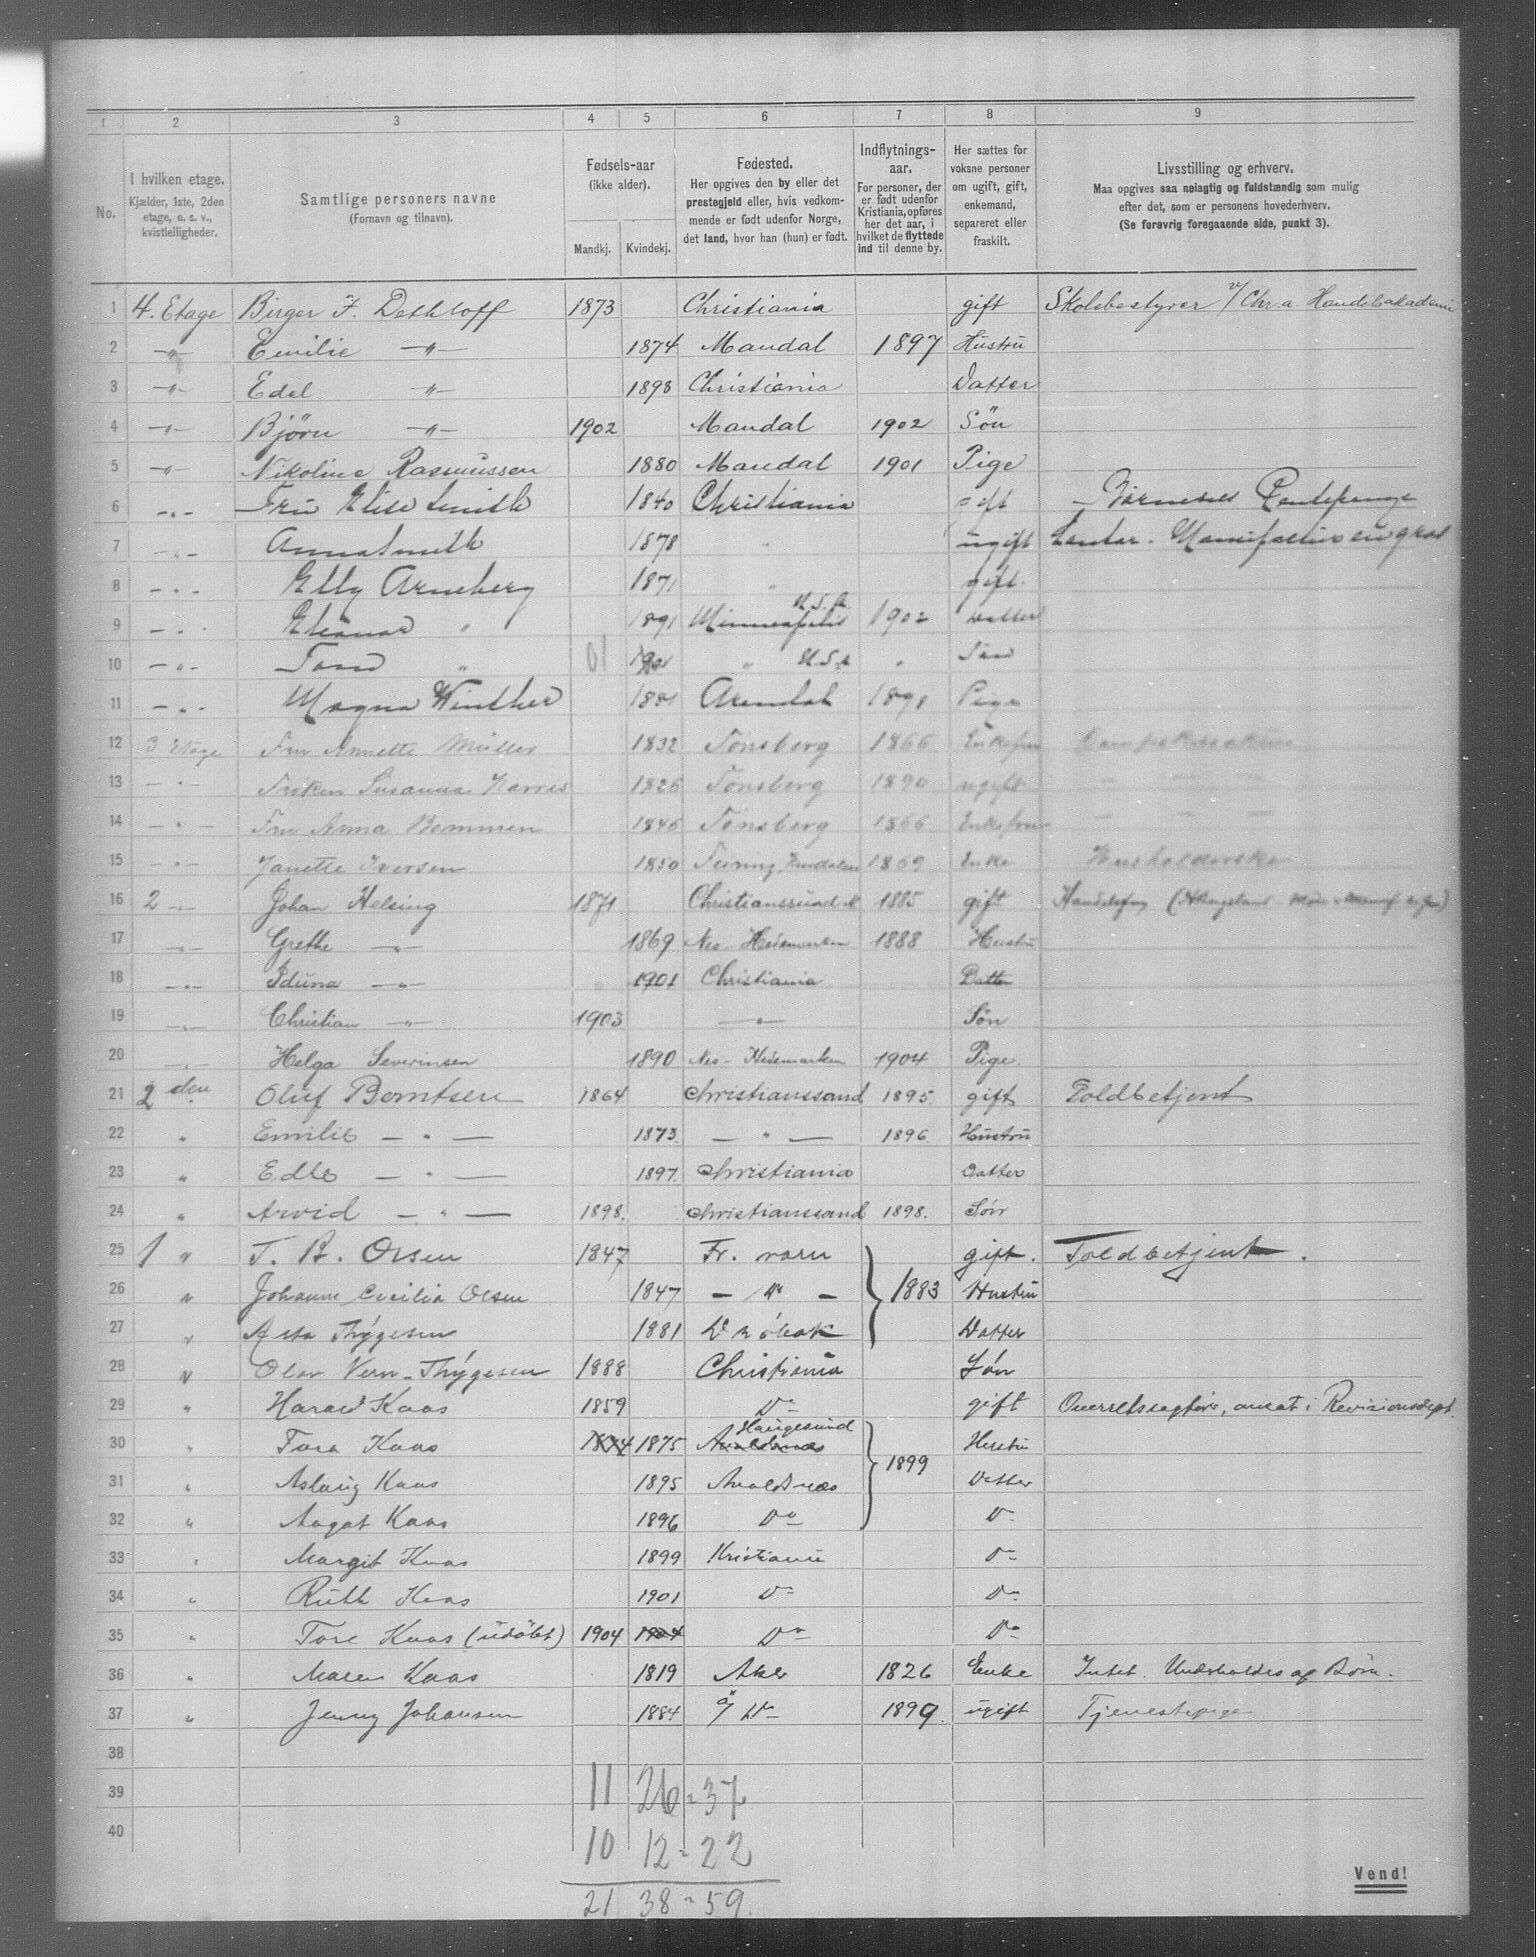 1 2 3 4 5 6 7 8 9
No.
I hvilken etage.
Kjælder, 1ste, 2den
etage, o. s. v.,
kvistleiligheder.
Samtlige personers navne
(Fornavn og tilnavn).
Fødsels-aar
(ikke alder).
Mandkj. Kvindekj.
Fødested.
Her opgives den by eller det
prestegjeld eller, hvis vedkom-
mende er født udenfor Norge,
det land, hvor han (hun) er født.
Indflytnings-
aar.
For personer, der
er født udenfor
Kristiania, opføres
her det aar, i
hvilket de flyttede
ind til denne by.
Her sættes for
voksne personer
om ugift, gift,
enkemand,
separeret eller
fraskilt.
Livsstilling og erhverv.
Maa opgives saa nøiagtig og fuldstændig som mulig
efter det, som er personens hovederhverv.
(Se forøvrig foregaaende side, punkt 3).
1 4. Etage Birger F. Dethloff 1873 Christiania gift Skolebestyrer v/ Chr.a. Handelsakademi
2 —"— Emilie —"— 1874 Mandal 1897 Hustru
3 —"— Edel —"— 1898 Christiania Datter
4 —"— Björn —"— 1902 Mandal 1902 Sön
5 —"— Nikoline Rasmussen 1880 Mandal 1901 Pige
6 —"— Fru Elise Smith 1840 Christiania gift Rentepenge
7 —"— Anna Smith 1878 " ugift Kontor. Manufactur en gros
8 —"— Elly Arneberg 1871 " gift.
9 —"— Eleanor " 1891 Minneapolis U.S.A. 1902 Datter
10 —"— " 01 " U.S.A "
11 —"— Magna Winther 1881 Arendal 1891 Pige
12 3 Etage Fru Annette Müller 1832 Tönsberg 1866 Enkefru
13 —"— Fröken Susanna 1826 Tönsberg 1890 ugift — — —
14 —"— Fru Anna Bommen 1846 Tönsberg 1866 Enkefru — — —
15 —"— Janette Iversen 1850 1869 Enke Husholderske
16 2 —"— Johan Helsing 1871 Christianssund N 1885 gift
17 —"— Grethe —"— 1869 Nes Hedemarken 1888 Hustru
18 —"— Iduna —"— 1901 Christiania Datter
19 —"— Christian —"— 1903 —"— Sön
20 —"— Helga Severinsen 1890 Nes - Hedemarken 1904 Pige
21 2 den Oluf Berntsen 1864 Christianssand 1895 gift Toldbetjent
22 " Emilie — " — 1873. — " — 1896 Hustru
23 " Edle — " — 1897. Christiania Datter
24 " Arvid — " — 1898. Christianssand 1898. Sön
25 1 " T. B. Olsen 1847 Fr. værn gift. Toldbetjent.
26 " Johanne Cecilia Olsen 1847 — " — 1883 Hustru
27 " Asta Thygesen 1881 Dröbak Datter
28 " Olav Vern-Thygesen 1888 Christiania Sön
29 " Harald Kaas 1859 Do gift Overretssagförer, ansat i Revisionsdept.
30 " Tora Kaas 1874 1875 Haugesund Avaldsnæs Hustru
31 " Aslaug Kaas 1895 Avaldsnæs 1899 Datter
32 " Aagot Kaas 1896 Do Do
33 " Margit Kaas 1899 Kristiania Do
34 " Ruth Kaas 1901 Do Do
35 " Tore Kaas (udöbt) 1904 1904 Do Do
36 " Maren Kaas 1819 Aker 1826 Enke Intet. Underholdes af Börn.
37 " Jenny Johansen 1884 Do 1899 ugift Tjenestepige
38
39 11 26 = 37
40 10 12 = 22
21 38 = 59.
Vend!